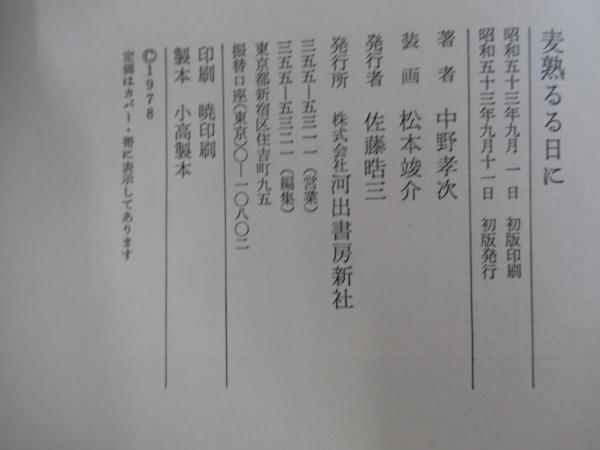 麦熟るる日に
昭和五十三年九月 一日 初版印刷
昭和五十三年九月十一日 初版発行
著者 中野孝次
装画 松本竣介
発行者 佐藤晧三
発行所 株式会社河出書房新社
三五五―五三一一(営業)
三五五―五三二一(編集)
東京都新宿区住吉町九五
振替口座(東京)〇―一〇八〇二
印刷 暁印刷
製本 小高製本
©1978
定価はカバー・帯に表示してあります